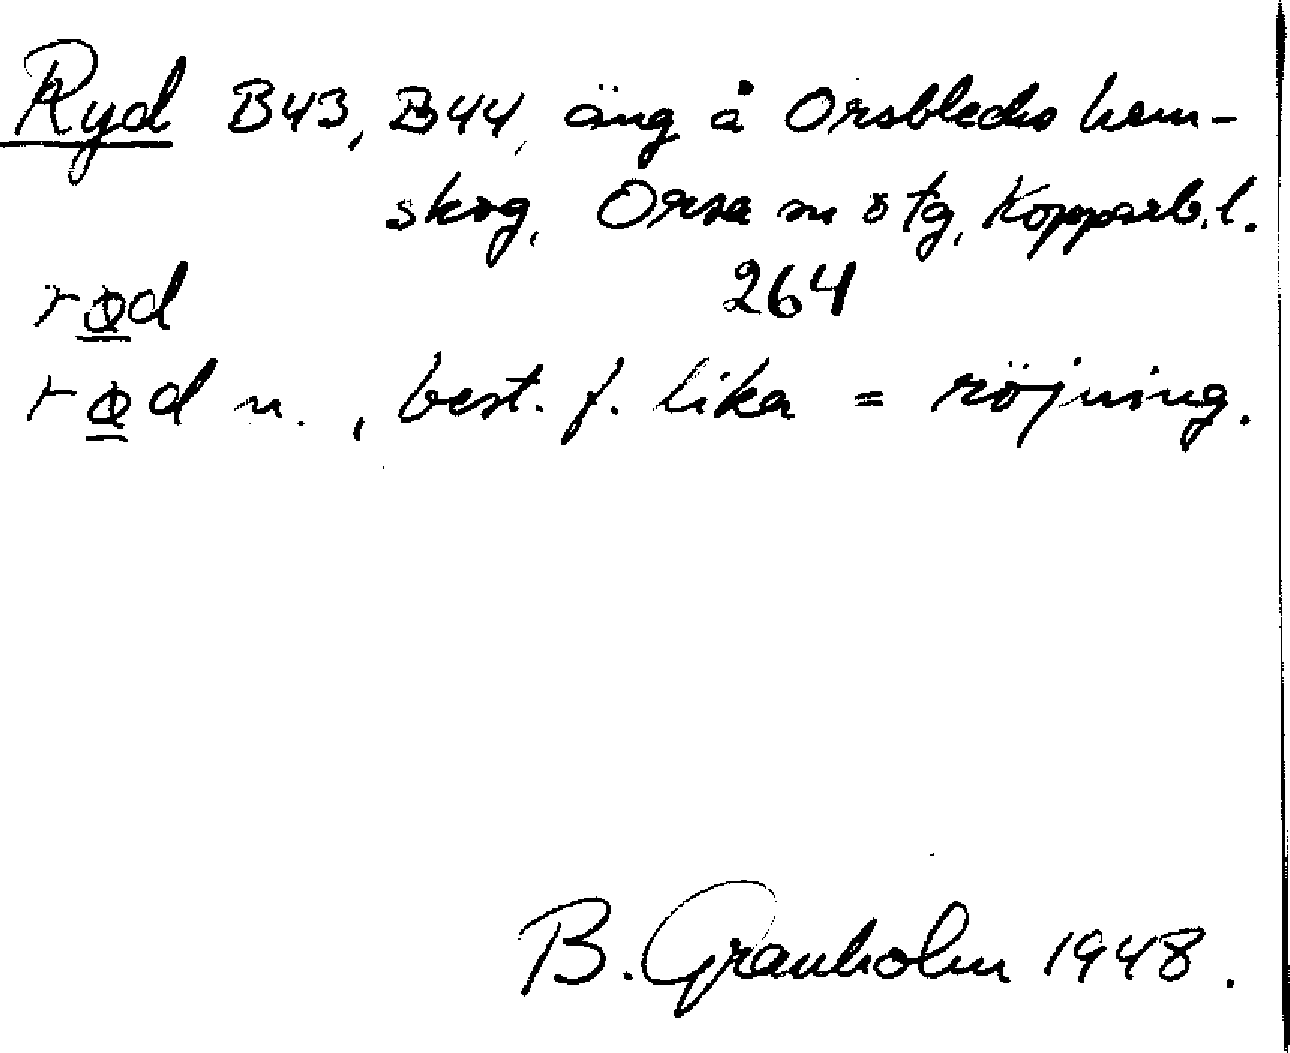 Ryd B43, B44, äng å Orsblecks hem-
skog, Orsa sn o tg, Kopparb. l.
rød 264
rød n., best. f. lika = röjning.
B. Granholm 1948.